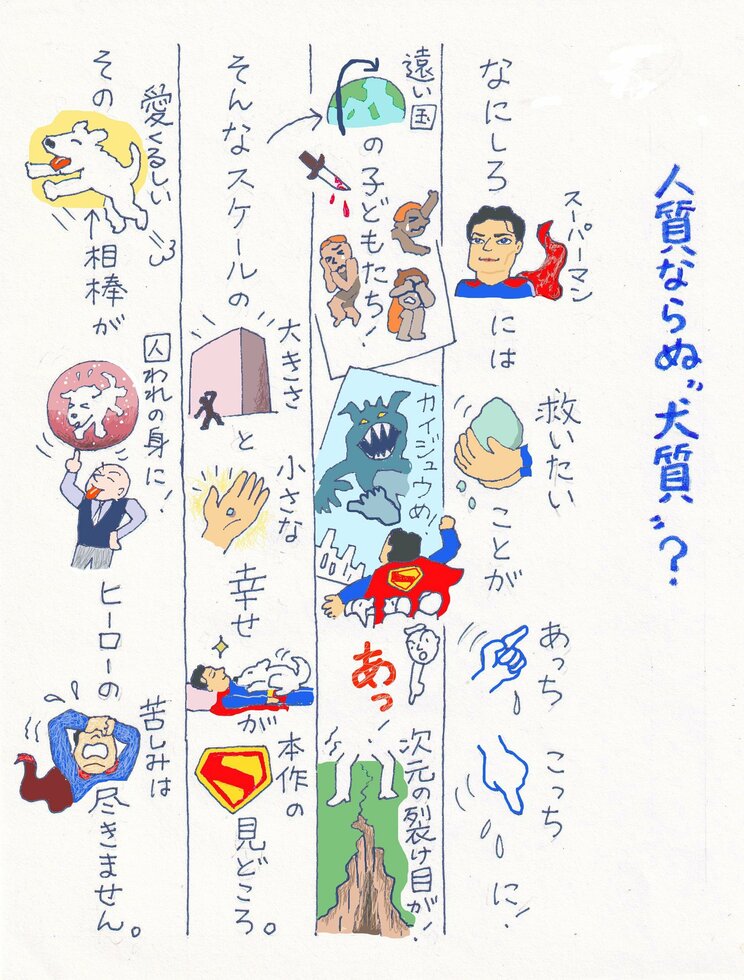 人質ならぬ〝犬質〟?
なにしろスーパーマンには救いたいことがあっちこっちに!
遠い国の子どもたち!カイジュウめ!あっ次元の裂け目が!
そんなスケールの大きさと小さな幸せが本作の見どころ。
その愛くるしい相棒が囚われの身に!ヒーローの苦しみは尽きません。